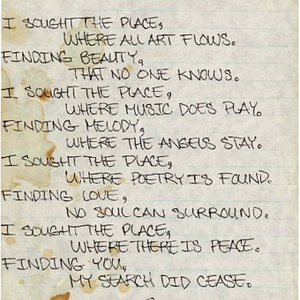 I SOUGHT THE PLACE,
WHERE ALL ART FLOWS.
FINDING BEAUTY,
THAT NO ONE KNOWS.
I SOUGHT THE PLACE,
WHERE MUSIC DOES PLAY.
FINDING MELODY,
WHERE THE ANGELS STAY.
I SOUGHT THE PLACE,
WHERE POETRY IS FOUND.
FINDING LOVE,
NO SOUL CAN SURROUND.
I SOUGHT THE PLACE,
WHERE THERE IS PEACE.
FINDING YOU,
MY SEARCH DID CEASE.